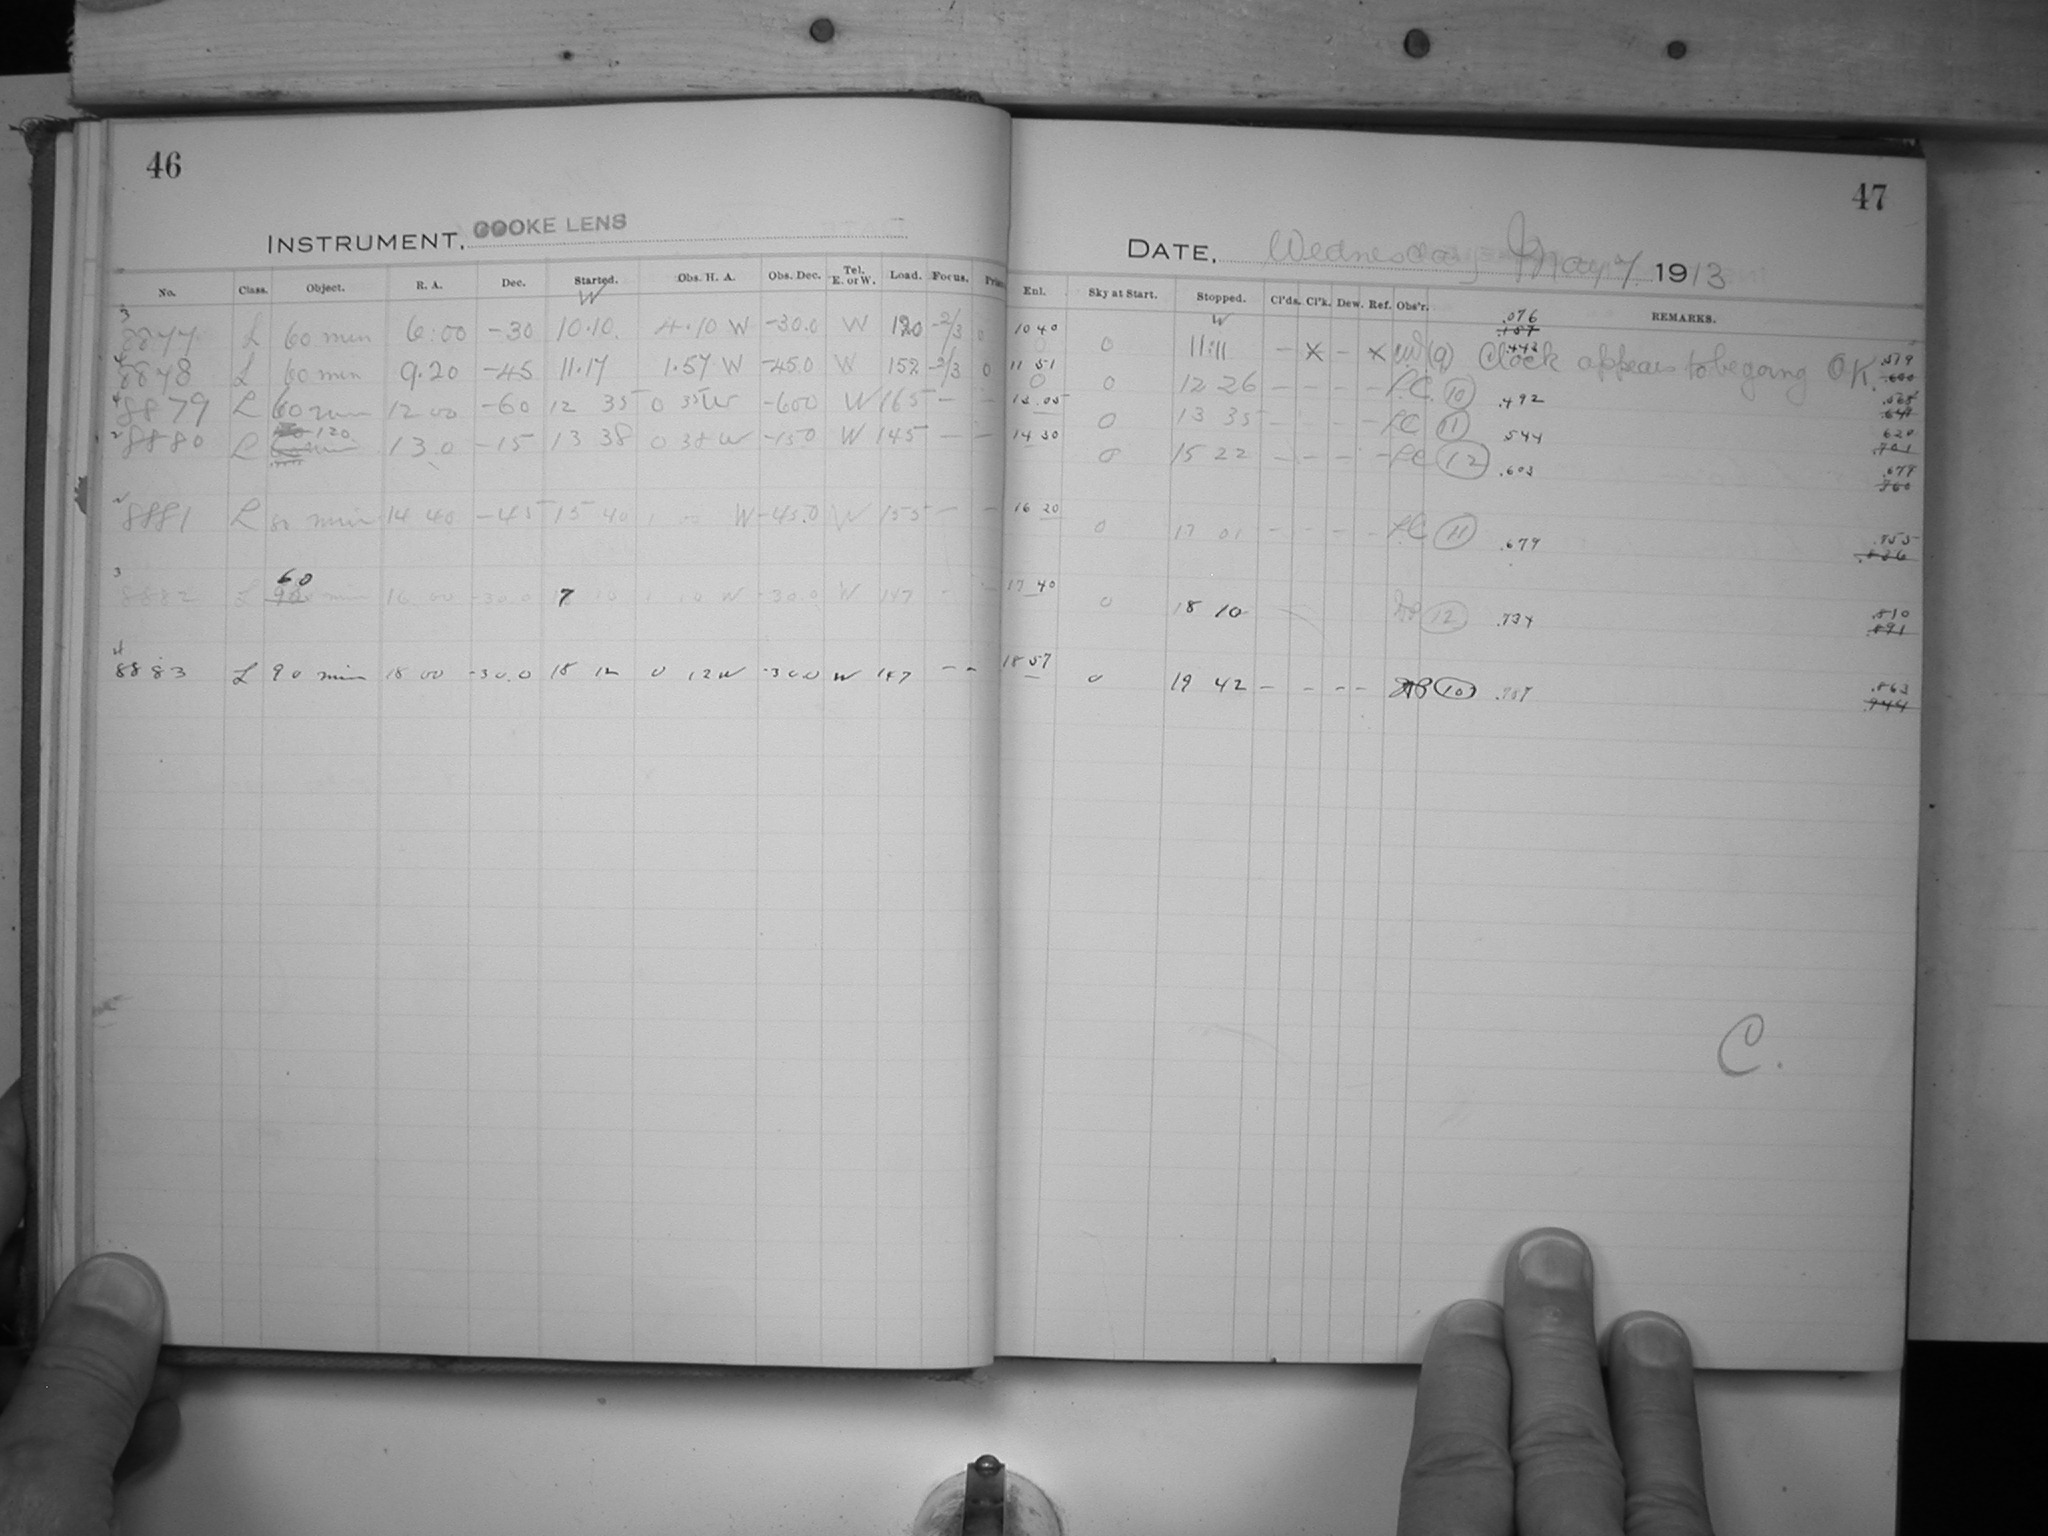 46
INSTRUMENT, COOKE LENS
No. Class. Object. R. A. Dec. Started. Obs. H. A. Obs. Dec. Tel. E. or W. Load. Focus.
W
3
8877 L 60 min 6:00 -30 10.10. 4.10 W -30.0 W 120 -2/3 0
8878 L 60 min 9.20 -45 11.17 1.57 W -45.0 W 152 -2/3 0
8879 L 60 min 12 00 -60 12 35 0 35 W -60 0 W 165 - -
120
8880 L 13 0 -15 13 38 0 38 W -15 0 W 145 - -
8881 L 80 min 14 40 -45 15 40 1 00 W -45.0 W 155 - -
3
60
8882 L 90 min 16 00 -30.0 17 10 1 10 W -30.0 W 147 - -
4
8883 L 90 min 18 00 -30.0 18 12 0 12 W -30.0 W 147 - -
47
DATE, Wednesday May 7 1913
Enl. Sky at Start. Stopped. Cl'ds. Cl'k. Dew. Ref. Obs'r. REMARKS.
W
.076
10 40 0 11:11 - x - x (9) Clock appears to be going O.K.
.443 .519
11 51 0 12 26 - - - - L.C. 10 .492 .568
13.05 0 13 35 - - - - L.C. 11 .544 .620
14 30 0 15 22 - - - - L.C. 12 .603 .679
16 20 0 17 01 - - - - L.C. 11 .679 .755
17 40 0 18 10 12 .734 .810
18 57 0 19 42 - - - - 10 .787 .863
C.